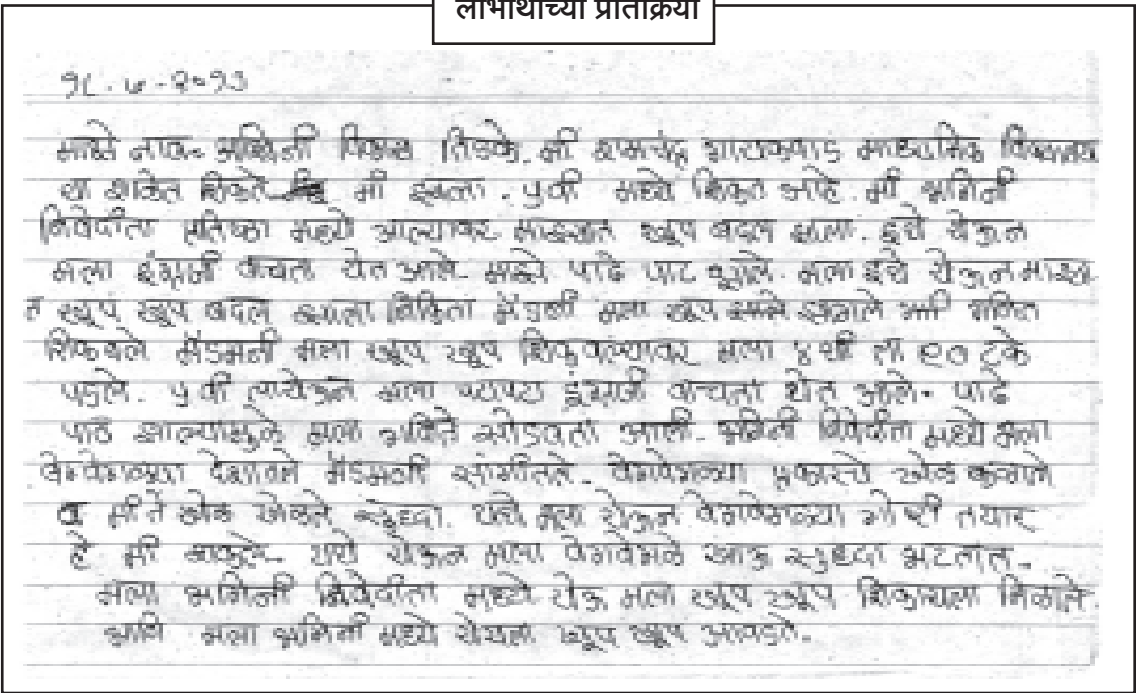 लाभार्थींच्या प्रतिक्रिया
१८-७-२०१३
माझे नाव अश्विनी विकास तिडके. मी रामचंद्र गायकवाड माध्यमिक विद्यालय
या शाळेत शिकते मी इयत्ता ५वी मध्ये शिकत आहे. मी भगिनी
निवेदीता प्रतिष्ठा मध्ये आल्यावर माझ्यात खूप बदल झाला. इथे येऊन
मला इंग्रजी वाचता येत आले. माझे पाढे पाट झाले. मला इथे येऊन माझ्या
त खूप खूप बदल झाला मॅडमनी मला खूप आणि गणित
शिकवले मॅडमनी मला खूप खूप शिकवल्यावर मला ४थी ला ९० टक्के
पडले. ५वी मला पटापट इंग्रजी वाचता येत आले. पाढे
पाठ झाल्यामुळे मला गणिते सोडवता आली. भगिनी निवेदीता मध्ये मला
वेगवेगळ्या मॅडमनी सांगीतले. वेगवेगळ्या प्रकारचे खेळ
व मी ते खेळ खेळते सुध्दा. येथे मला येऊन वेगवेगळ्या गोष्टी तयार
मी येथे येऊन मला वेगवेगळे खाऊ सुध्दा भेटतात.
मला भगिनी निवेदीता मध्ये येऊ मला खूप खूप शिकायला मिळाले.
आणि मला भगिनी मध्ये येयला खूप खूप आवडते.